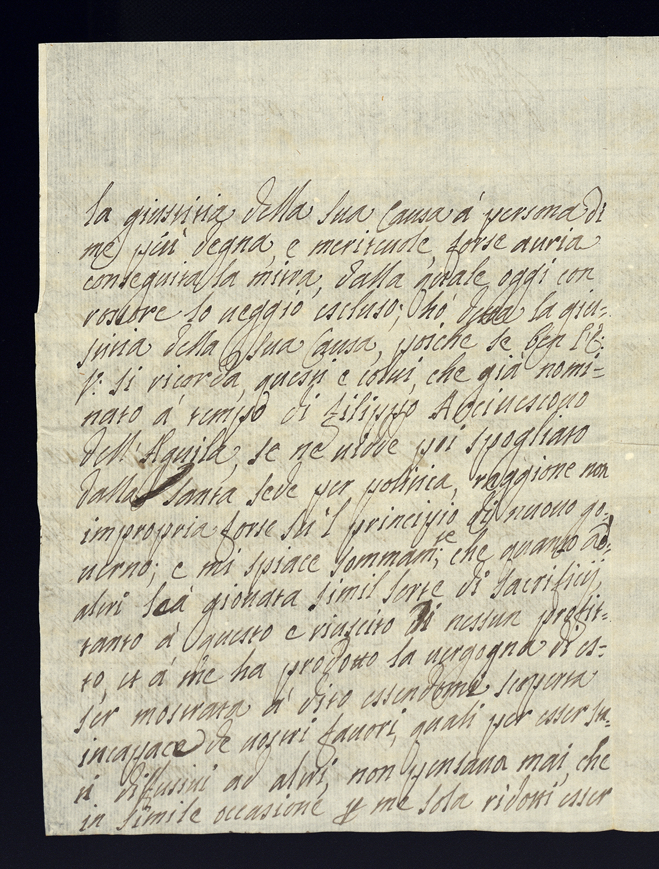 la giustitia della sua causa à persona di
me più degna, e meriteuole forse auria
conseguita la mitra, dalla quale oggi con
rossore lo ueggio escluso; hò detta la giu=
stitia della sua causa, poiche se ben l'E:
V: si ricorda, questi è colui, che già nomi=
nato à tempo di Filippo Arciuescouo
dell'Aquila, se ne uidde poi spogliato
dalla santa sede per politica, raggione non
impropria forse su'l principio di nuouo go=
uerno; e mi spiace sommam.te che quanto ad=
altri sea giouata simil sorte di sacrificij,
tanto à questo è riuscito di nessun profit=
to, et à me ha prodotto la uergogna di es=
ser mostrata à dito essendomi scoperta
incapace de uostri fauori, quali per esser sta=
ti diffusiui ad altri, non pensaua mai, che
in simile occasione p me sola ridotti esser